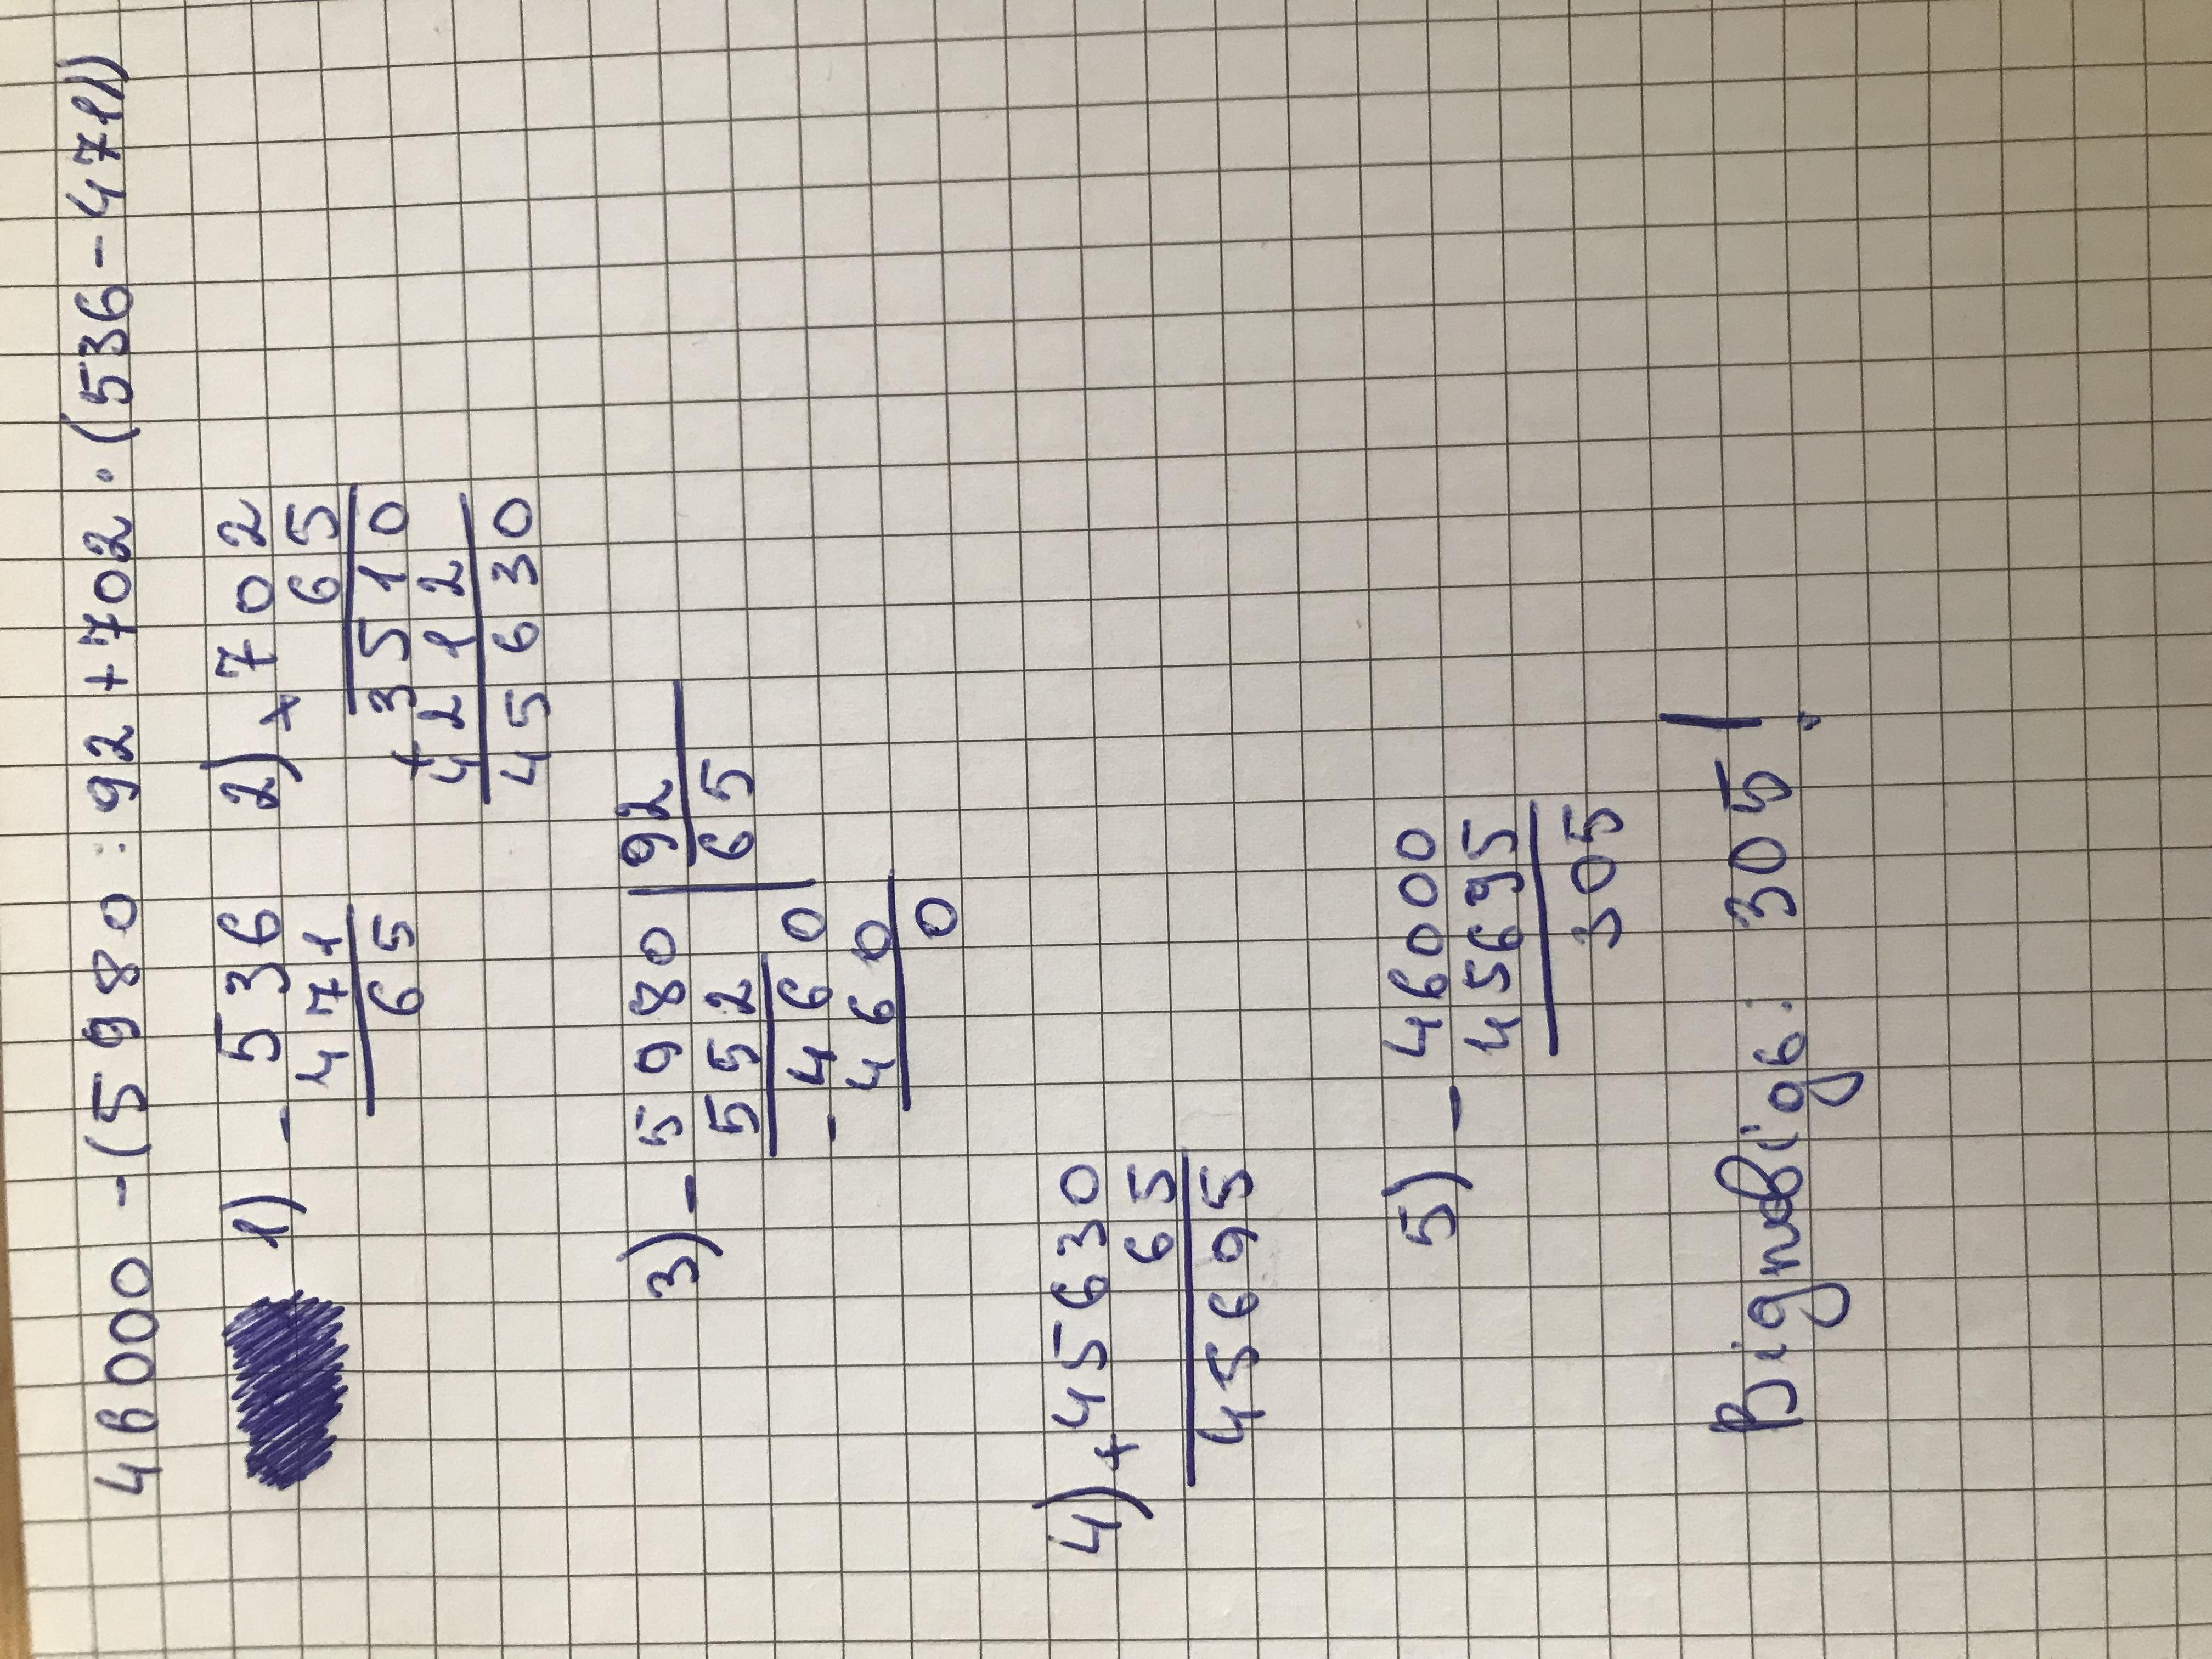 46000 - (5980 : 92 + 702 · (536 - 471))
1) - 536 2) × 702
471 65
65 3510
+ 4212
45630
3) - 5980 | 92
552 65
- 460
460
0
4) + 45630
65
45695
5) - 46000
45695
305
Відповідь: 305!